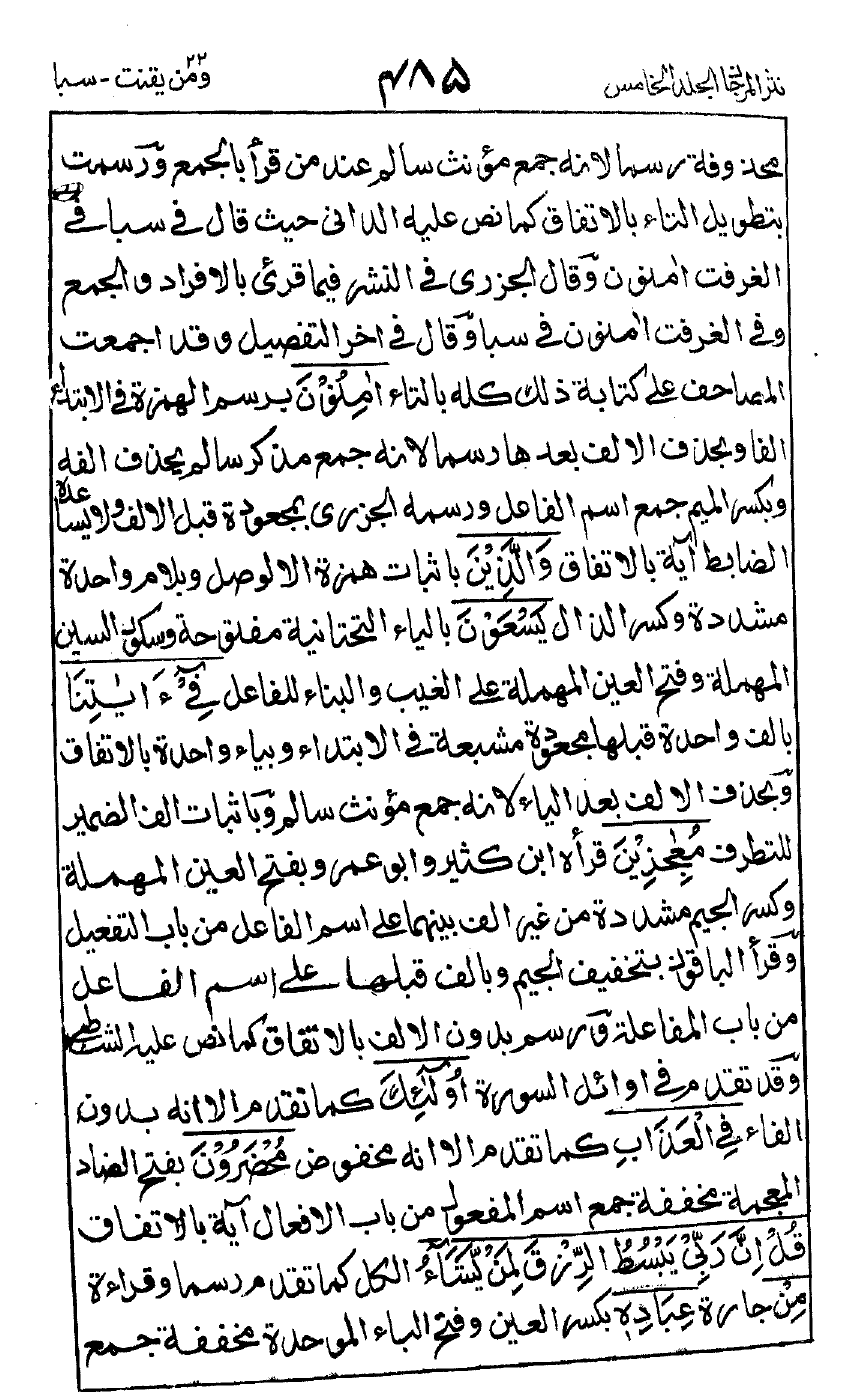 نثر المرجان الجلد الخامس ٤٨۵ ومن يقنت ٢٢ - سبا
محذوفة رسما لانه جمع مؤنث سالم عند من قرأ بالجمع وَّرسمت
بتطويل التاء بالاتفاق كما نص عليه الدانى حيث قال فى سبا فى
الغرفت اٰمنون وَّقال الجزرى فى النشر فيما قرئ بالافراد والجمع
وفى الغرفت اٰمنون فى سبا وَّقال فى اخر التفصيل وقد اجمعت
المصاحف على كتابة ذلك كله بالتاء اٰمِنُوْنَ برسم الهمزة فى الابتداء
الفا وبحذف الالف بعدها رسما لانه جمع مذكر سالم يحذف الفه
وبكسر الميم جمع اسم الفاعل ورسمه الجزرى بمجعودة قبل الالف ولا يساعده
الضابط آية بالاتفاق وَالَّذِيْنَ باثبات همزة الالوصل وبلام واحدة
مشددة وكسر الذال يَسْعَوْنَ بالياء التحتانية مفتوحة وسكون السين
المهملة وفتح العين المهملة على الغيب والبناء للفاعل فِيْٓ ءَايٰتِنَا
بالف واحدة قبلها مجعودة مشبعة فى الابتداء وبياء واحدة بالاتفاق
وَّبحذف الالف بعد الياء لانه جمع مؤنث سالم وَّباثبات الف الضمير
للتطرف مُعٰجِزِيْنَ قرأه ابن كثير وابو عمرو بفتح العين المهملة
وكسر الجيم مشددة من غير الف بينهما على اسم الفاعل من باب التفعيل
وَّقرأ الباقون بتخفيف الجيم وبالف قبلها على اسم الفاعل
من باب المفاعلة وَّرسم بدون الالف بالاتفاق كما نص عليه الشاطبى
وَّقد تقدم فى اوائل السورة اُولٰٓئِكَ كما تقدم الا انه بدون
الفاء فِى الْعَذَابِ كما تقدم الا انه مخفوض مُحْضَرُوْنَ بفتح الضاد
المعجمة مخففة جمع اسم المفعول من باب الافعال آية بالاتفاق
قُلْ اِنَّ رَبِّيْ يَبْسُطُ الرِّزْقَ لِمَنْ يَّشَآءُ الكل كما تقدم رسما وقراءة
مِنْ جارة عِبَادِهٖ بكسر العين وفتح الباء الموحدة مخففة جمع